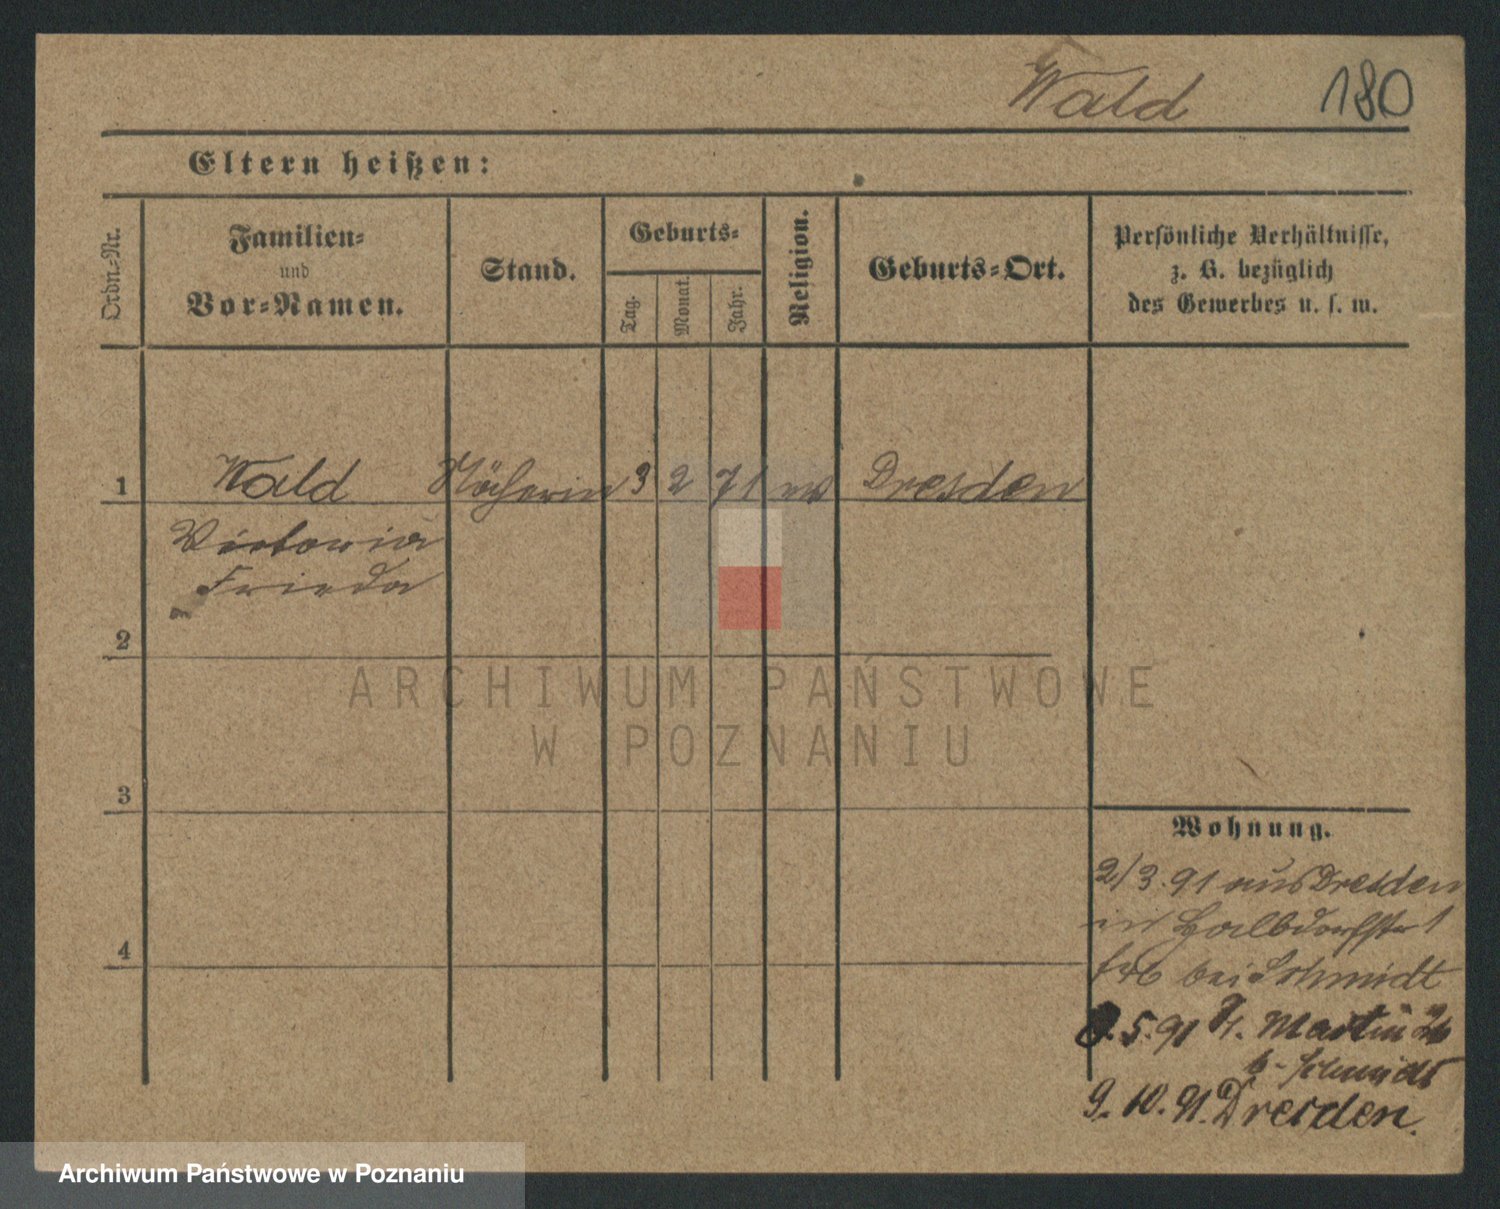 Wald 180
Eltern heißen:
Ordn.-Nr.
Familien-
und
Vor-Namen.
Stand.
Geburts-
Tag.
Monat.
Jahr.
Religion.
Geburts-Ort.
Persönliche Verhältnisse,
z. B. bezüglich
des Gewerbes u. s. w.
1 Wald Näherin 3 2 71 ev Dresden
Victoria
Frieda
2
ARCHIWUM PAŃSTWOWE
W POZNANIU
3
Wohnung.
2/3.91 aus Dresden
in Halbdorfstr 1
bei Schmidt
4
.5.91 St. Martin 26
b. Schmidt
9.10.91. Dresden.
Archiwum Państwowe w Poznaniu